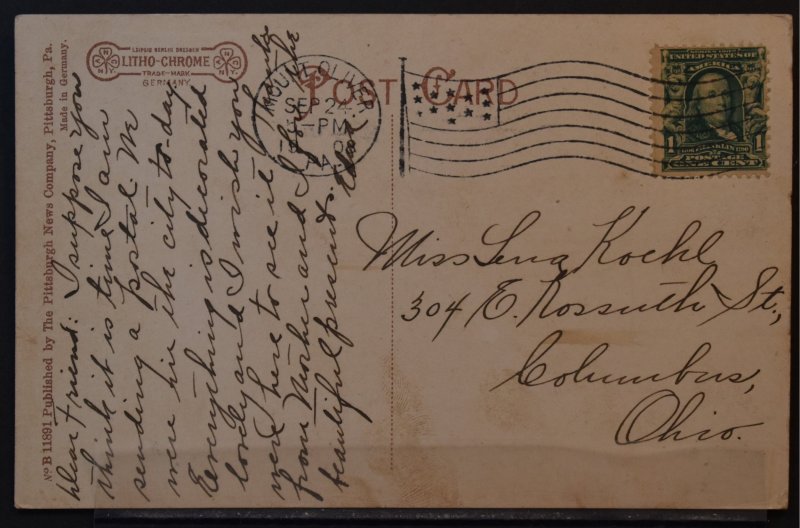 No B 11891 Published by The Pittsburgh News Company, Pittsburgh, Pa.
Made in Germany.
LEIPZIG BERLIN DRESDEN
LITHO-CHROME
TRADE-MARK
GERMANY
POST CARD
MOUNT OLIVER
SEP 2
PM
PA
UNITED STATES OF
AMERICA
1 1
FRANKLIN
POSTAGE
ONE CENT
Dear friend: I suppose you
think it is time I am
sending a postal. We
were in the city to-day
Everything is decorated
lovely and I wish you
were here to see it
from Mother and I for the
beautiful presents.
Miss Lena Koehl
304 E. Kossuth St.,
Columbus,
Ohio.